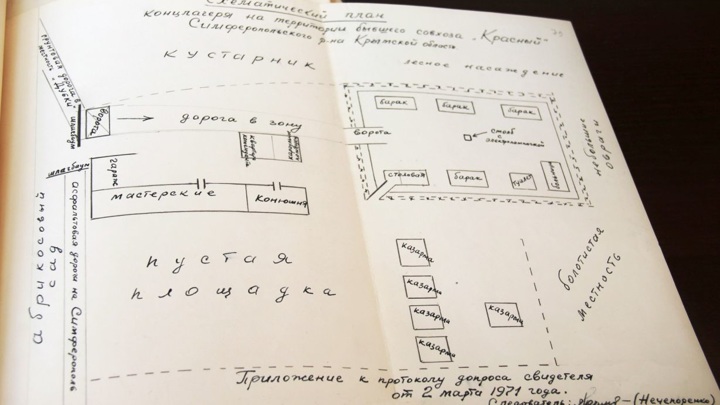 Схематический план
концлагеря на территории бывшего совхоза „Красный"
Симферопольского р-на Крымской области.
кустарник
лесное насаждение
ворота
дорога в зону
барак
барак
барак
ворота
столб
с
небольшие
овраги
шлагбаум
шлагбаум
гараж
столовая
барак
мастерские
конюшня
абрикосовый
сад
Асфальтовая дорога на Симферополь
пустая
площадка
казарма
казарма
казарма
казарма
казарма
болотистая
местность
Приложение к протоколу допроса свидетеля
от 2 марта 1971 года.
Следователь: (Нечепоренко)